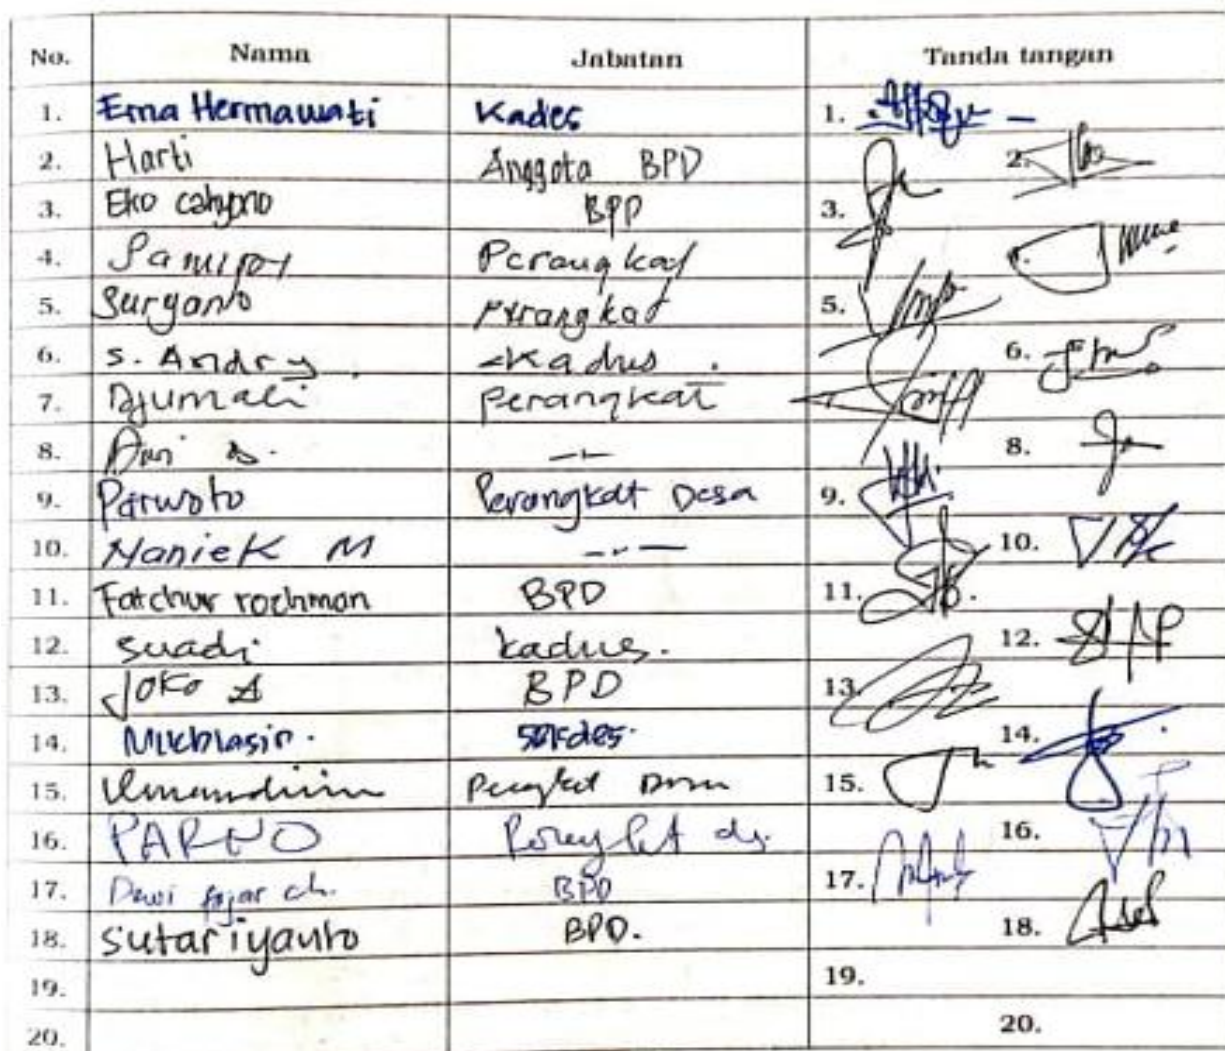 No. Nama Jabatan Tanda tangan
1. Erna Hermawati Kades 1.
2. Harti Anggota BPD 2.
3. Eko cahyono BPD 3.
4. Perangkat
5. Suryanto Perangkat 5.
6. S. Andry. Kadus. 6.
7. Djumali Perangkat
8. 8.
9. Parwoto Perangkat Desa 9.
10. Naniek M 10.
11. Fatchur rochman BPD 11.
12. Suadi kadus. 12.
13. JOKO A BPD 13.
14. Mukhlasin. sekdes. 14.
15. 15.
16. 16.
17. Dewi fajar ch. BPD 17.
18. Sutariyanto BPD. 18.
19. 19.
20. 20.